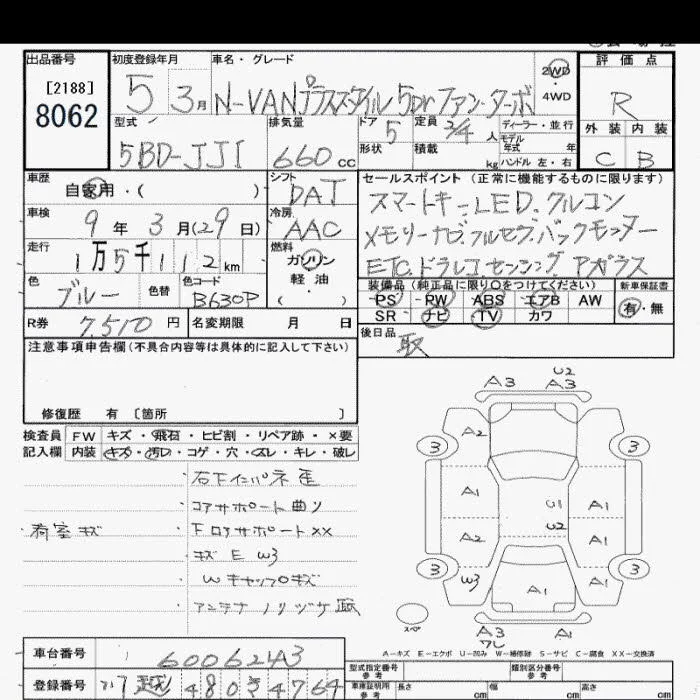 出品番号
[2188]
8062
初度登録年月
5 3月
車名・グレード
N-VANプラススタイル 5Drファン・ターボ
2WD
4WD
評価点
R
外装 内装
C B
型式
5BD-JJ1
排気量
660cc
ドア 5
形状
定員 2/4人
積載 kg
ディーラー・並行
モデル年式 年
ハンドル 左・右
車歴
自家用・( )
シフト
DAT
車検
9年3月(29日)
冷房
AAC
走行
1万5千112km
燃料
ガソリン
軽油
( )
色
ブルー
色替
色コード
B630P
R券 7,510円
名変期限 月 日
セールスポイント (正常に機能するものに限ります)
スマートキー.LED.クルコン
メモリーナビ.フルセグ.バックモニター
ETC.ドラレコ.センシング.Aガラス
装備品(純正品に限り○をつけてください)
PS PW ABS エアB AW
SR ナビ TV カワ
新車保証書
有・無
後日品
取
注意事項申告欄(不具合内容等は具体的に記入して下さい)
修復歴 有 〔箇所 〕
検査員記入欄
FW キズ・飛石・ヒビ割・リペア跡・×要
内装 キズ・汚レ・コゲ・穴・スレ・キレ・破レ
右下インパネ歪
コアサポート曲り
荷室キズ
下ロアサポートXX
キズ E W3
WキャップOキズ
A3 A3 U2
A2
3 3
A1 U1 A1
A2 U2 A1
3 3
W3 A1 A1
スペア
A3 A1
ワレ
A-キズ E-エクボ U-凹み W-補修跡 S-サビ C-腐食 XX-交換済
車台番号
6006243
登録番号
型式指定番号
参考
類別区分番号
参考
車庫証明用
参考
長さ cm
幅 cm
高さ cm